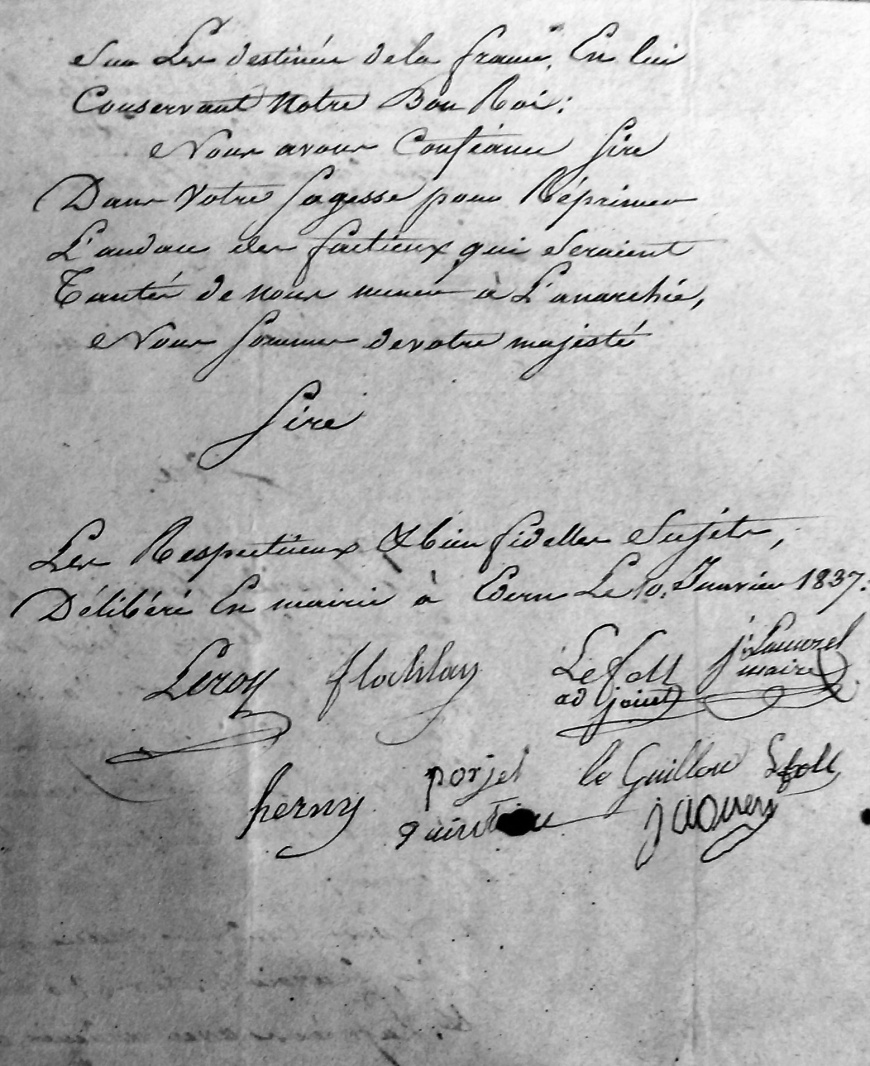 Sur Les destinées de la france, En lui
Conservant Notre Bon Roi;
Nous avons Confiance Sire
Dans Votre Sagesse pour Réprimer
L'audace des factieux qui Seraient
Tantés de nous mener à L'anarchié,
Nous Sommes de votre majesté
Sire
Les Respectueux & bien fidelles Sujets,
Délibéré En mairie à Edern Le 10. Janvier 1837.
Leroy flochlay Le foll
ad joint maire
herny porjet le Guillou Lefoll